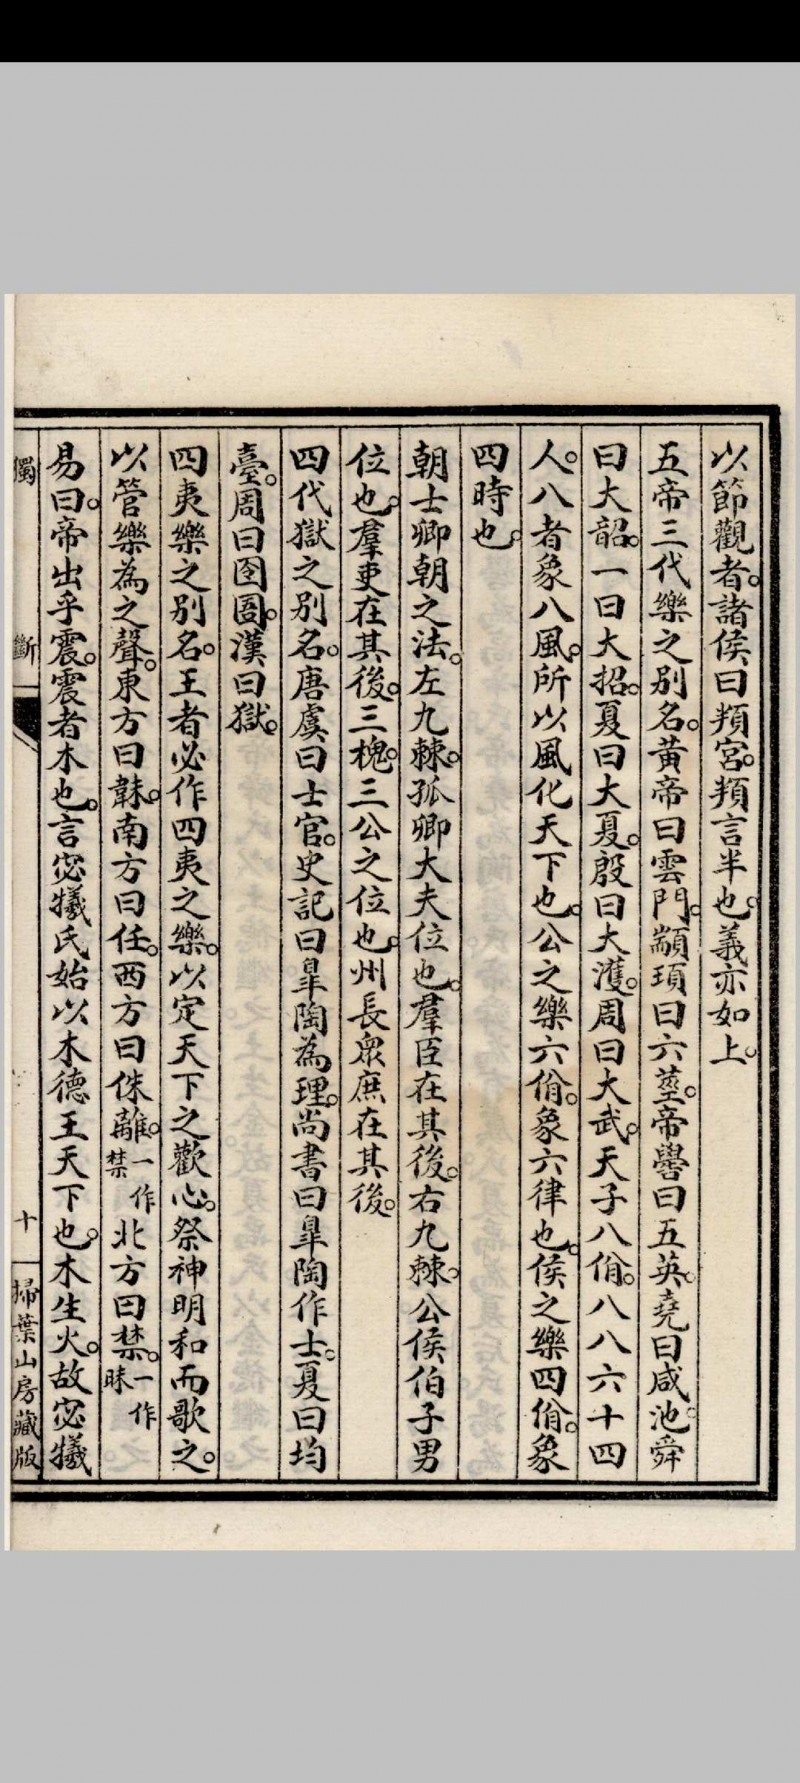 以節觀者。諸侯曰頖宮。頖言半也。義亦如上。
五帝三代樂之別名。黃帝曰雲門。顓頊曰六莖。帝嚳曰五英。堯曰咸池。舜
曰大韶。一曰大招。夏曰大夏。殷曰大濩。周曰大武。天子八佾。八八六十四
人。八者象八風。所以風化天下也。公之樂六佾。象六律也。侯之樂四佾。象
四時也。
朝士卿朝之法。左九棘。孤卿大夫位也。羣臣在其後。右九棘。公侯伯子男
位也。羣吏在其後。三槐。三公之位也。州長衆庶在其後。
四代獄之別名。唐虞曰士官。史記曰臯陶為理。尚書曰臯陶作士。夏曰均
臺。周曰囹圄。漢曰獄。
四夷樂之別名。王者必作四夷之樂。以定天下之歡心。祭神明和而歌之。
以管樂為之聲。東方曰韎。南方曰任。西方曰侏離。一作禁北方曰禁。一作昧
易曰。帝出乎震。震者木也。言宓犧氏始以木德王天下也。木生火。故宓犧
獨斷 十 掃葉山房藏版